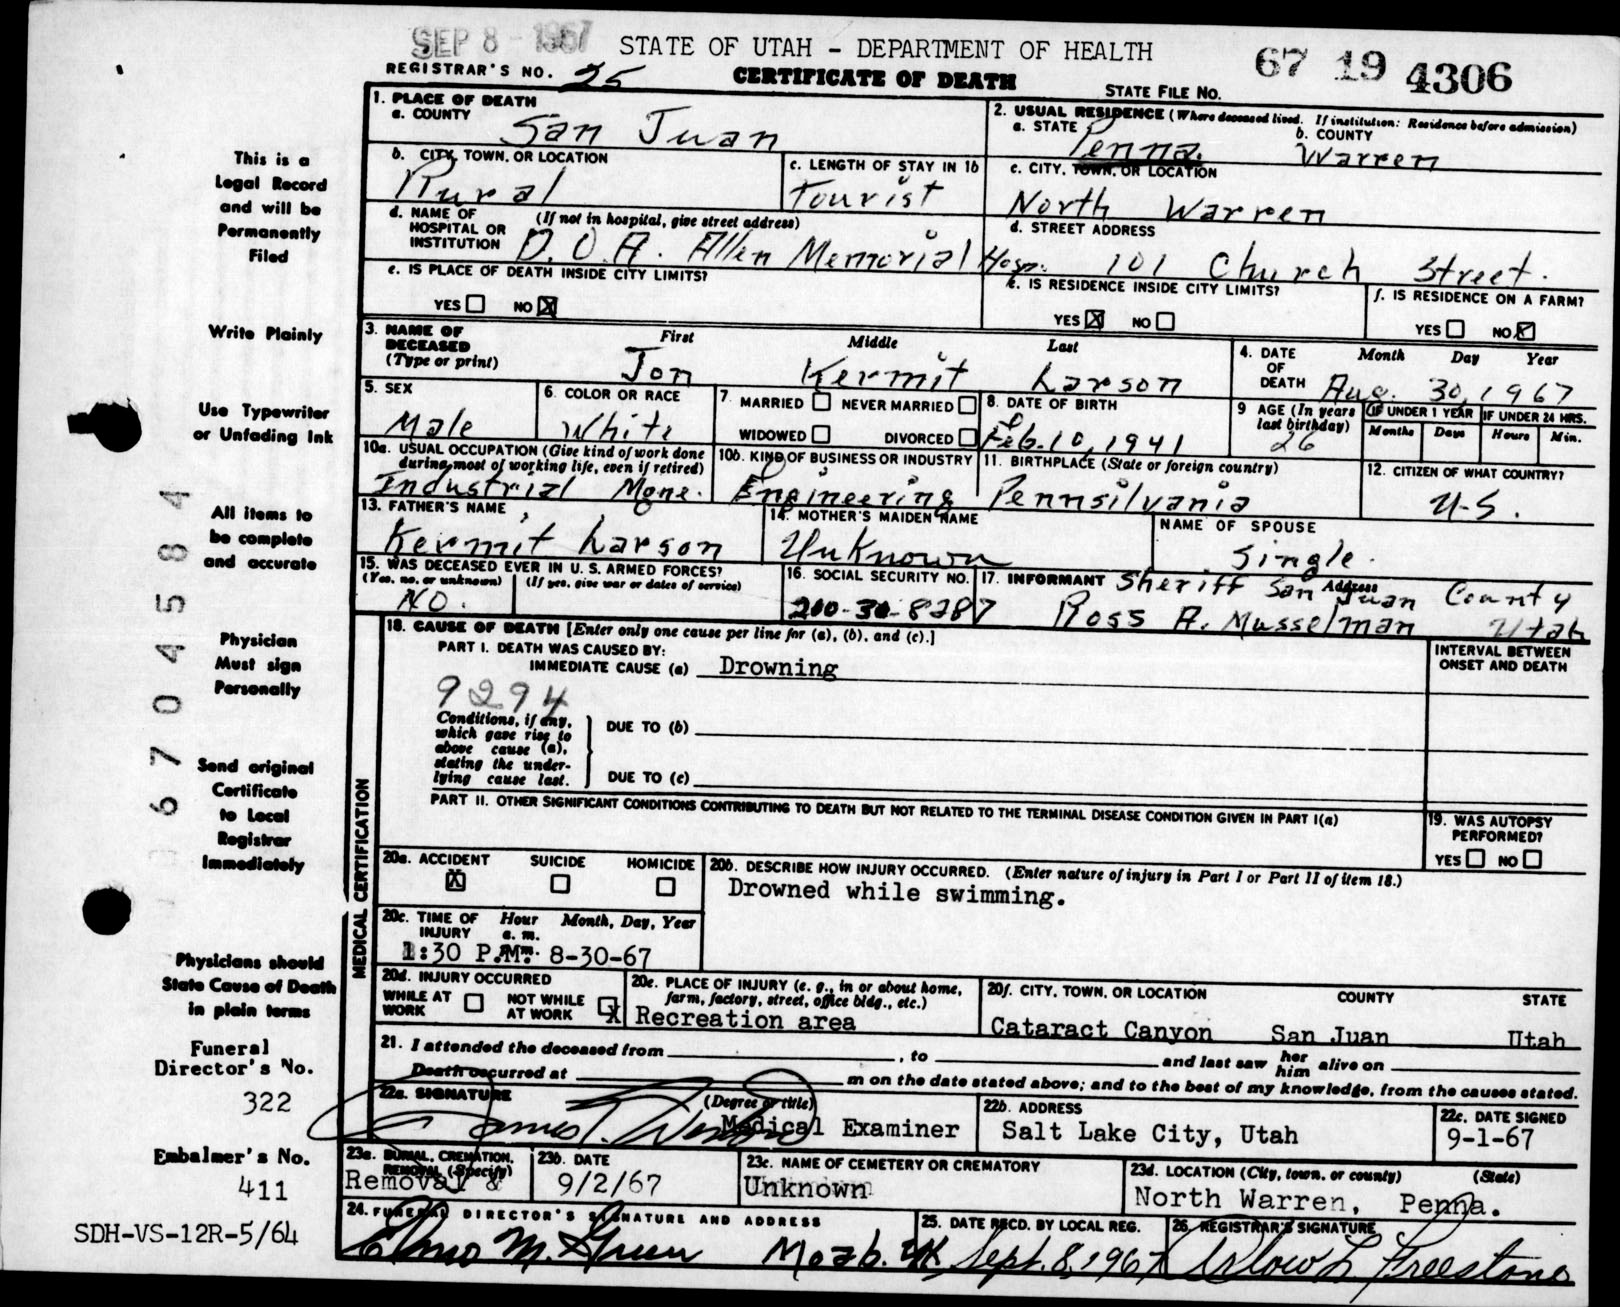 SEP 8 - 1967
STATE OF UTAH - DEPARTMENT OF HEALTH
67 19 4306
REGISTRAR'S NO. 25
CERTIFICATE OF DEATH
STATE FILE NO.
1. PLACE OF DEATH
a. COUNTY
San Juan
2. USUAL RESIDENCE (Where deceased lived. If institution: Residence before admission)
a. STATE
Penna.
b. COUNTY
Warren
b. CITY, TOWN, OR LOCATION
Rural
c. LENGTH OF STAY IN 1b
Tourist
c. CITY, TOWN, OR LOCATION
North Warren
d. NAME OF HOSPITAL OR INSTITUTION
(If not in hospital, give street address)
D.O.A. Allen Memorial Hosp.
d. STREET ADDRESS
101 Church Street.
e. IS PLACE OF DEATH INSIDE CITY LIMITS?
YES NO X
e. IS RESIDENCE INSIDE CITY LIMITS?
YES X NO
f. IS RESIDENCE ON A FARM?
YES NO X
3. NAME OF DECEASED
(Type or print)
First Middle Last
Jon Kermit Larson
4. DATE OF DEATH
Month Day Year
Aug. 30, 1967
5. SEX
Male
6. COLOR OR RACE
White
7. MARRIED NEVER MARRIED
WIDOWED DIVORCED
8. DATE OF BIRTH
Feb. 10, 1941
9 AGE (In years last birthday)
26
IF UNDER 1 YEAR
Months Days
IF UNDER 24 HRS.
Hours Min.
10a. USUAL OCCUPATION (Give kind of work done during most of working life, even if retired)
Industrial Mgne.
10b. KIND OF BUSINESS OR INDUSTRY
Engineering
11. BIRTHPLACE (State or foreign country)
Pennsilvania
12. CITIZEN OF WHAT COUNTRY?
U.S.
13. FATHER'S NAME
Kermit Larson
14. MOTHER'S MAIDEN NAME
Unknown
NAME OF SPOUSE
Single.
15. WAS DECEASED EVER IN U.S. ARMED FORCES?
(Yes, no, or unknown) (If yes, give war or dates of service)
NO.
16. SOCIAL SECURITY NO.
200-30-8287
17. INFORMANT Address
Sheriff San Juan County
Ross A. Musselman Utah
18. CAUSE OF DEATH [Enter only one cause per line for (a), (b), and (c).]
PART I. DEATH WAS CAUSED BY:
IMMEDIATE CAUSE (a) Drowning
INTERVAL BETWEEN ONSET AND DEATH
9294
Conditions, if any, which gave rise to above cause (a), stating the underlying cause last.
DUE TO (b)
DUE TO (c)
PART II. OTHER SIGNIFICANT CONDITIONS CONTRIBUTING TO DEATH BUT NOT RELATED TO THE TERMINAL DISEASE CONDITION GIVEN IN PART I(a)
19. WAS AUTOPSY PERFORMED?
YES NO
MEDICAL CERTIFICATION
20a. ACCIDENT SUICIDE HOMICIDE
X
20b. DESCRIBE HOW INJURY OCCURRED. (Enter nature of injury in Part I or Part II of item 18.)
Drowned while swimming.
20c. TIME OF INJURY Hour Month, Day, Year
a. m.
1:30 P.M. 8-30-67
20d. INJURY OCCURRED
WHILE AT WORK NOT WHILE AT WORK X
20e. PLACE OF INJURY (e. g., in or about home, farm, factory, street, office bldg., etc.)
Recreation area
20f. CITY, TOWN, OR LOCATION COUNTY STATE
Cataract Canyon San Juan Utah
21. I attended the deceased from , to and last saw her him alive on
Death occurred at m on the date stated above; and to the best of my knowledge, from the causes stated.
22a. SIGNATURE (Degree or title)
James T. Medical Examiner
22b. ADDRESS
Salt Lake City, Utah
22c. DATE SIGNED
9-1-67
23a. BURIAL, CREMATION, REMOVAL (Specify)
Removal &
23b. DATE
9/2/67
23c. NAME OF CEMETERY OR CREMATORY
Unknown
23d. LOCATION (City, town, or county) (State)
North Warren, Penna.
24. FUNERAL DIRECTOR'S SIGNATURE AND ADDRESS
Elmo M. Green Moab. Ut.
25. DATE RECD. BY LOCAL REG.
Sept. 8, 1967
26. REGISTRAR'S SIGNATURE
Arlow L. Freestone
This is a
Legal Record
and will be
Permanently
Filed
Write Plainly
Use Typewriter
or Unfading Ink
All items to
be complete
and accurate
Physician
Must sign
Personally
Send original
Certificate
to Local
Registrar
Immediately
Physicians should
State Cause of Death
in plain terms
Funeral
Director's No.
322
Embalmer's No.
411
SDH-VS-12R-5/64
67045584